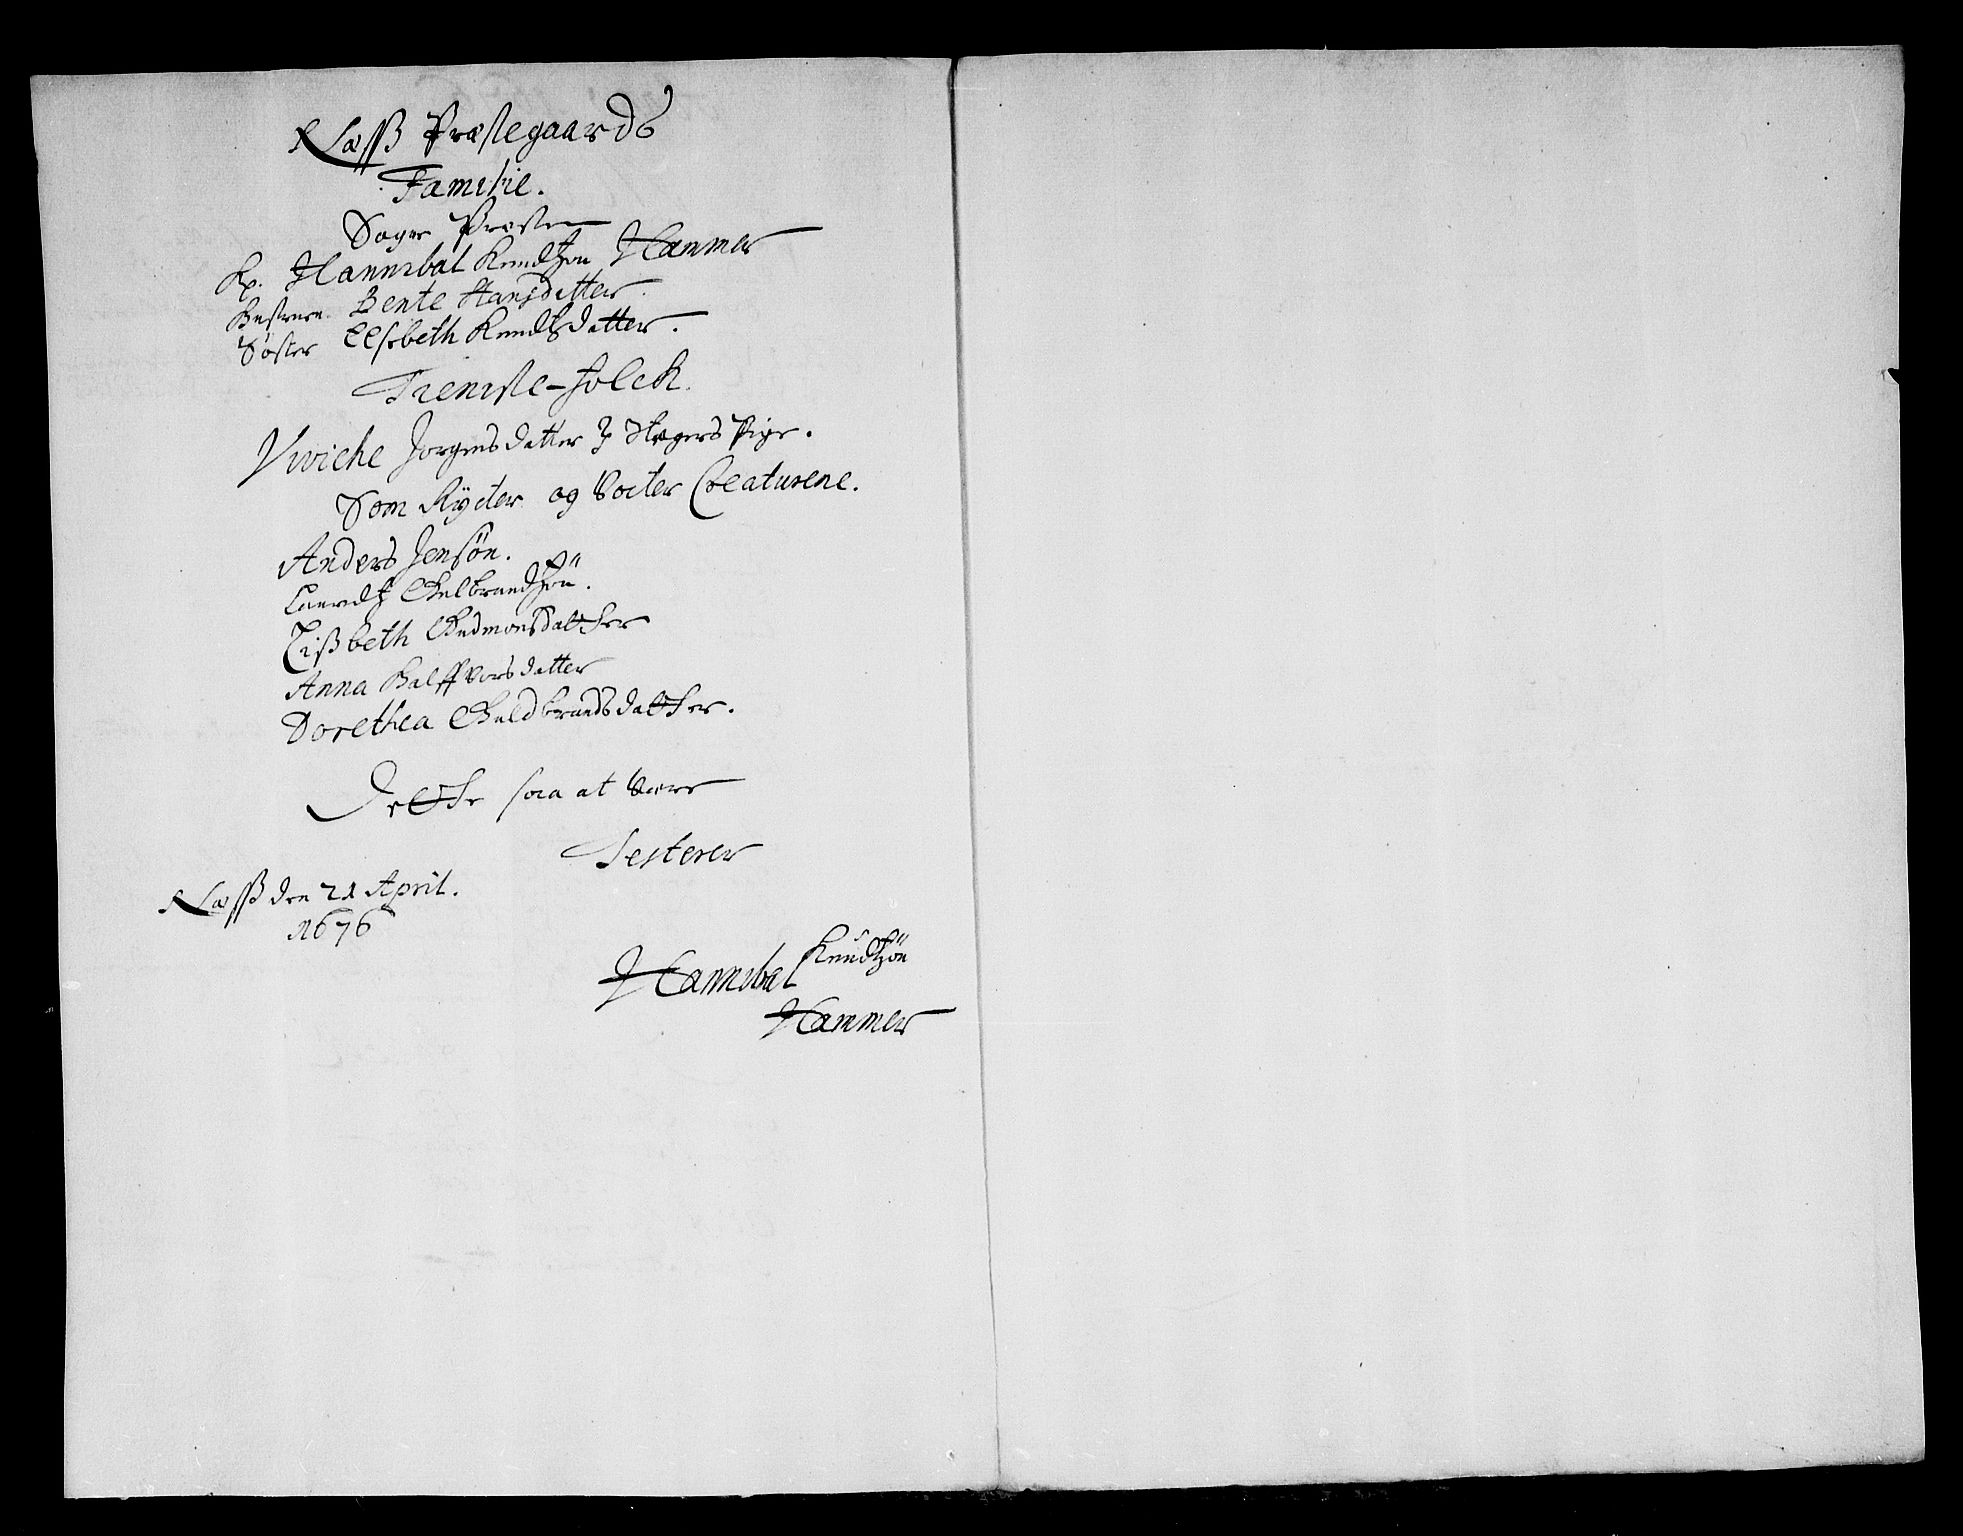 Næssß Præstegaards
Familie.
Sogne Præsten
Hr. Hannibal Knudtzøn Hammer
Hustruen. Bente Hansdatter
Søster Elsebeth Knudtzdatter.
Tieniste-folck.
Viviche Jorgensdatter Pige.
Som Rÿcter og Vocter Creaturene.
Anders Jensøn.
Lauridtz Gulbrandtzøn.
Lißbeth Gudmonsdatther
Anna Halffvorsdatter
Dorethea Guldbrandsdatther.
Detthe saa at være
Testerer
Næssß den 21 April.
1676
Hannibal Knudtzøn
Hammer